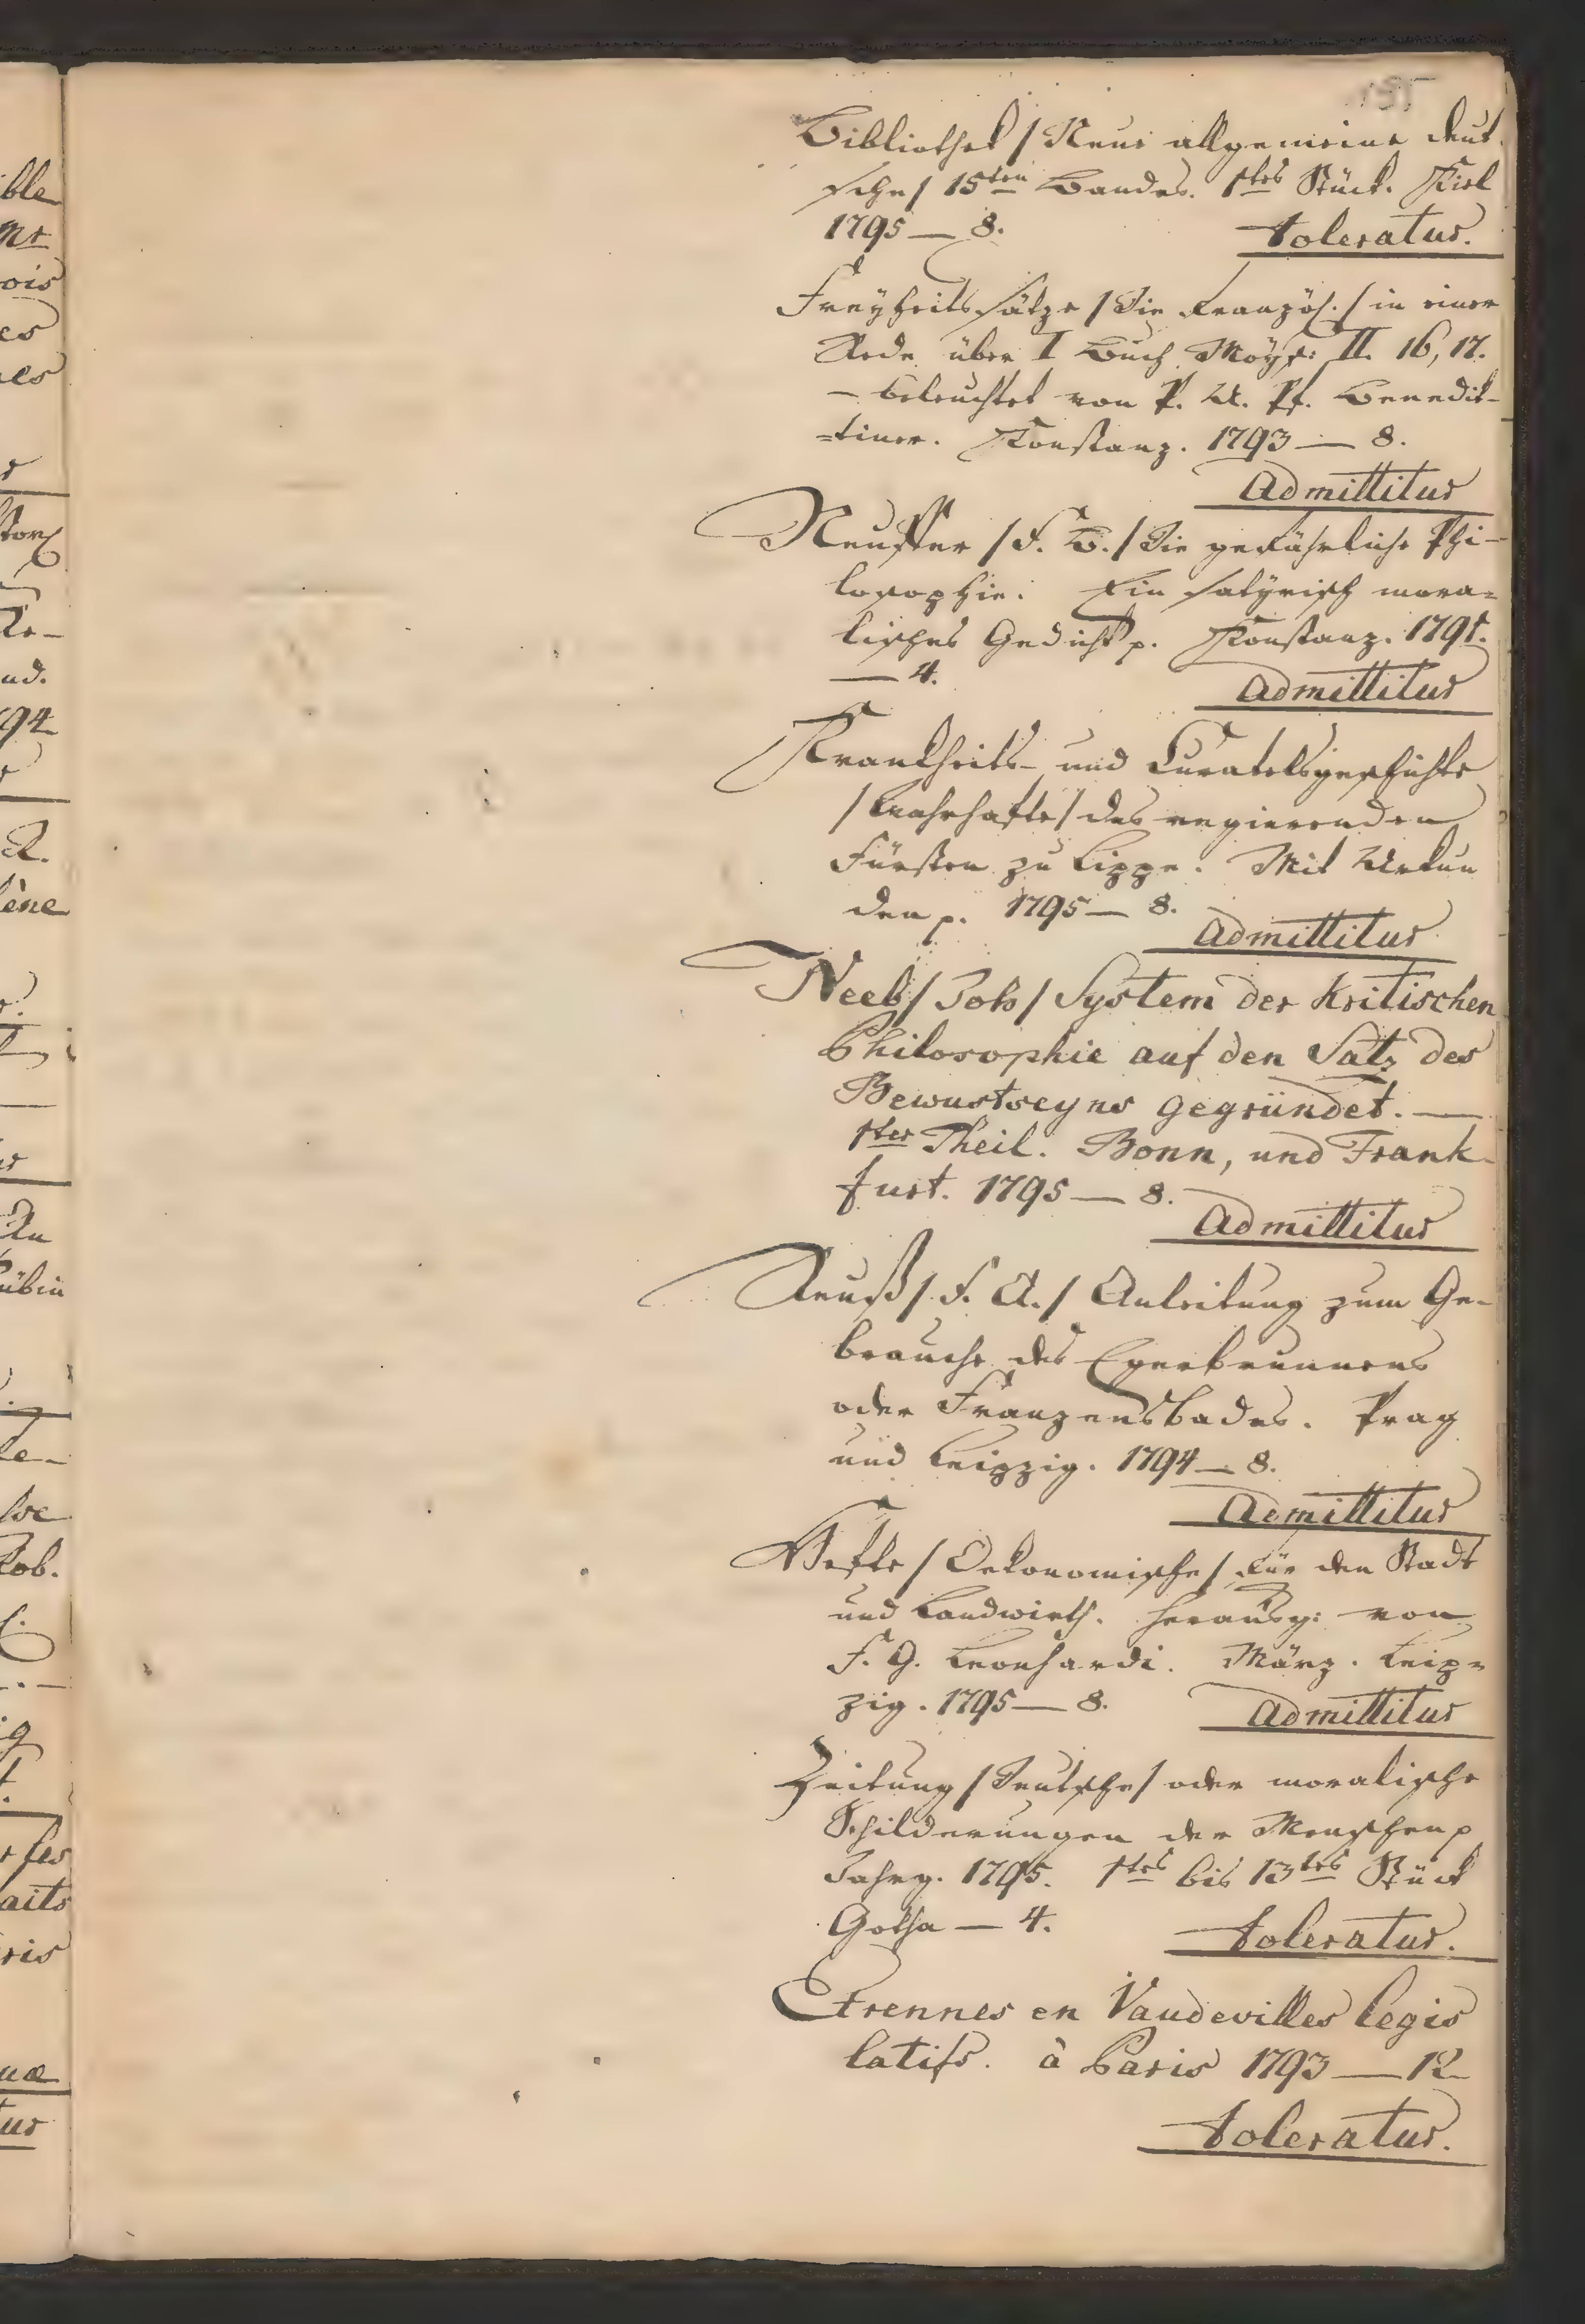 Bibliothek / Neue allgemeine deut-
sche / 15ten Bandes. 1tes Stück. Kiel
1795 — 8. Toleratur.
Freyheitssätze / Die Französ. / in einer
Rede über I Buch Möys: II. 16, 17.
— beleuchtet von P. U. Pf. Benedik-
=tiner. Konstanz. 1793 — 8.
Admittitur
Neuffer / F. B. / Die gefährliche Phi-
losophie. Ein satyrisch mora=
lisches Gedicht p. Konstanz. 1795.
— 4. Admittitur
Krankheits- und Curatelsgeschichte
/ Wahrhafte / des regierenden
Fürsten zu Lippe. Mit Urkun
den p. 1795 — 8.
Admittitur
Neeb / Joh / System der kritischen
Philosophie auf den Satz des
Bewustseyns gegründet. —
1ter Theil. Bonn, und Frank-
furt. 1795 — 8.
Admittitur
Reuß / F. A. / Anleitung zum Ge-
brauche des Egerbrunnens
oder Franzensbades. Prag
und Leipzig. 1794 — 8.
Admittitur
Hefte / Oekonomische / für den Stadt
und Landwirth. Herausg: von
F. G. Leonhardi. März. Leip=
zig. 1795 — 8. Admittitur
Zeitung / Deutsche / oder moralische
Schilderungen der Menschen p
Jahrg. 1795. 1tes bis 13tes Stück
Gotha — 4. Toleratur.
Etrennes en Vaudevilles legis
latifs. à Paris 1793 — 12
Toleratur.